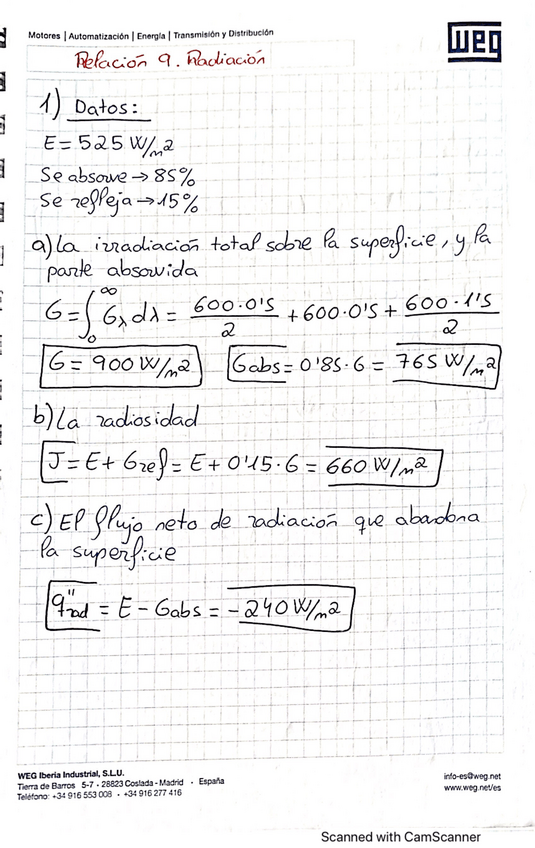 Motores | Automatización | Energía | Transmisión y Distribución
WEG
Relación 9. Radiación
1) Datos:
E = 525 W/m²
Se absorve → 85%
Se refleja → 15%
a) La irradiación total sobre la superficie, y la
parte absorvida
G = ∫₀^∞ Gλ dλ = 600·0'5/2 + 600·0'5 + 600·1'5/2
G = 900 W/m² Gabs = 0'85·G = 765 W/m²
b) La radiosidad
J = E + Gref = E + 0'15·G = 660 W/m²
c) El flujo neto de radiación que abandona
la superficie
q''rad = E - Gabs = -240 W/m²
WEG Iberia Industrial, S.L.U.
Tierra de Barros 5-7 · 28823 Coslada - Madrid · España
Teléfono: +34 916 553 008 · +34 916 277 416
info-es@weg.net
www.weg.net/es
Scanned with CamScanner